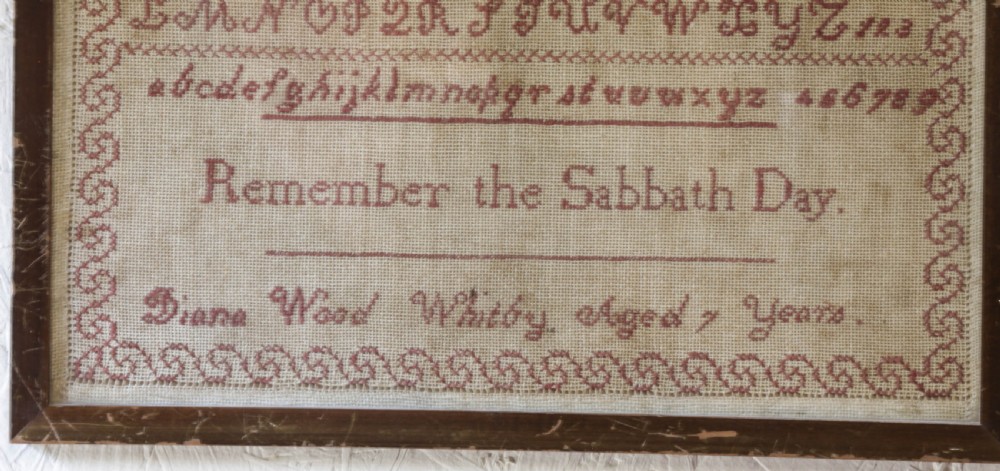 L M N O P Q R S T U V W X Y Z 1 2 3
a b c d e f g h i j k l m n o p q r s t u v w x y z 4 5 6 7 8 9
Remember the Sabbath Day.
Diana Wood Whitby, Aged 7 Years.